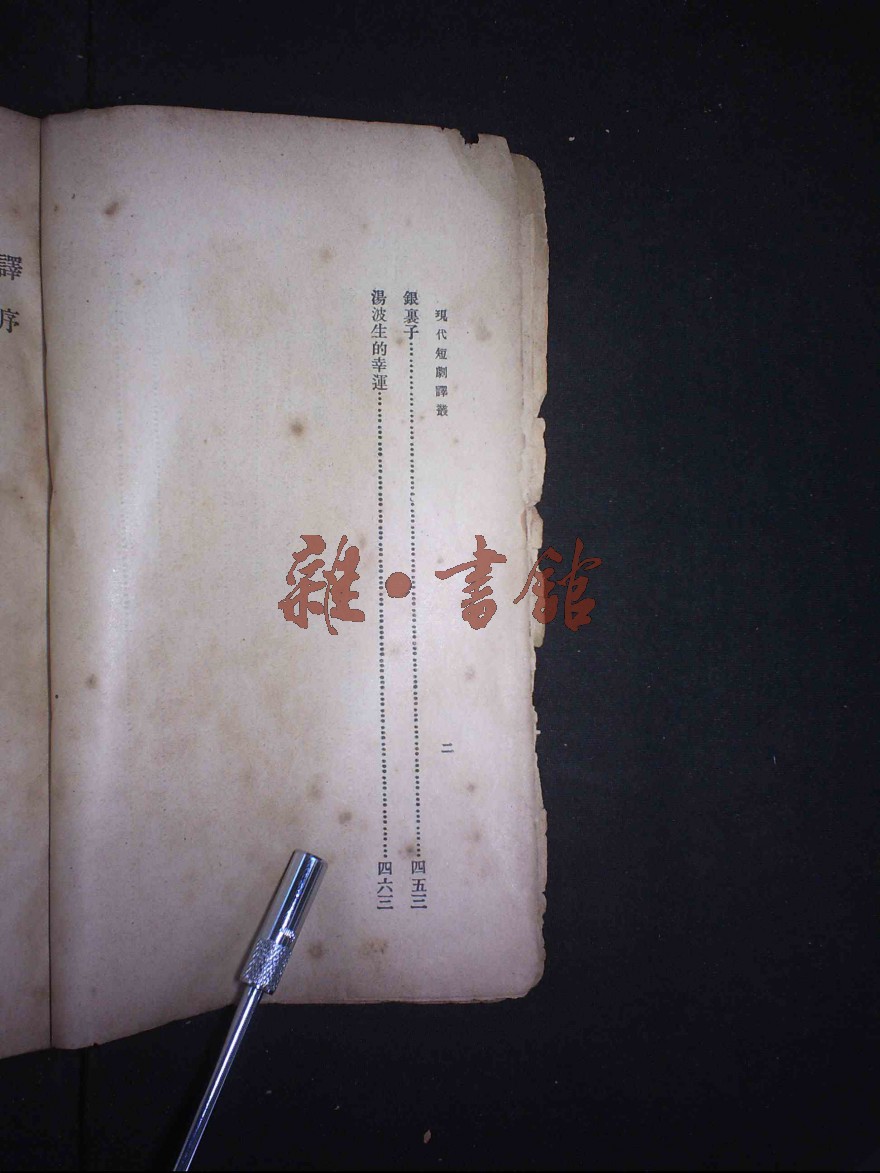 現代短劇譯叢
二
銀裏子……四五三
湯波生的幸運……四六三
譯序
雜•書館